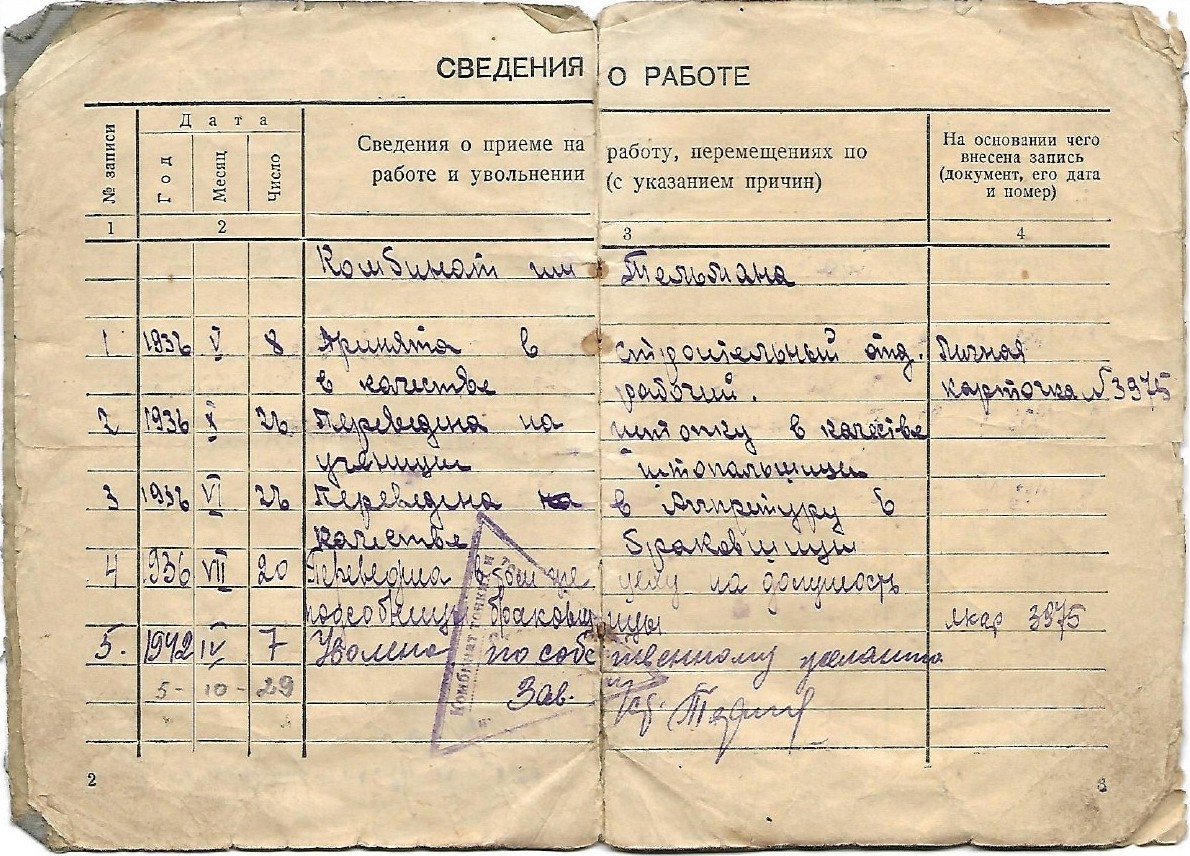 СВЕДЕНИЯ О РАБОТЕ
№ записи
Дата
Год
Месяц
Число
Сведения о приеме на работу, перемещениях по
работе и увольнении (с указанием причин)
На основании чего
внесена запись
(документ, его дата
и номер)
1 2 3 4
Комбинат им Тельмана
1 1936 V 8 Принята в строительный отд. Личная
в качестве рабочий. карточка № 3975
2 1936 X 26 Переведена на штопку в качестве
ученицы штопальщицы
3 1936 VI 26 Переведена на в Аппретуру в
качестве браковщицы
4 1936 VII 20 Переведена в цеху на должность
подсобницы браковщицы лкар 3975
5. 1942 IV 7 Уволена по собственному желанию
5 - 10 - 29 Зав.
Комбинат тонких и
2
3